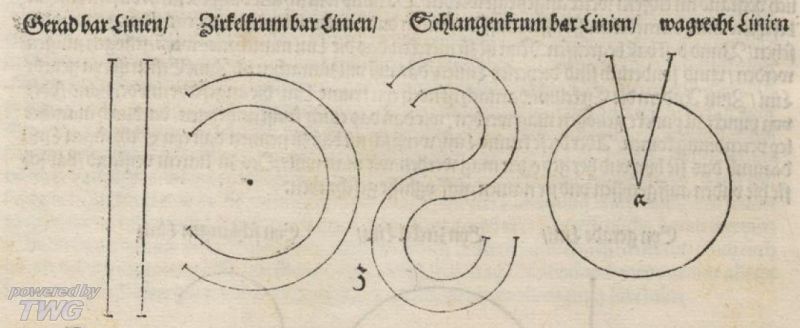 Gerad bar Linien/ Zirkelkrum bar Linien/ Schlangenkrum bar Linien/ wagrecht Linien
a
3
powered by
TWG